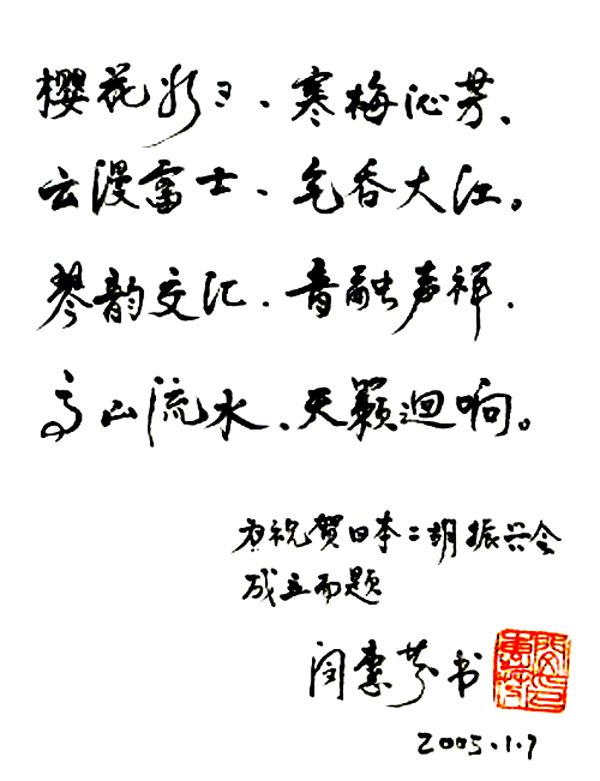 櫻花、寒梅沁芳、
云漫富士、香大江。
琴韵交汇、音融声祥.
高山流水、天籁迴响。
为祝贺日本二胡振兴会
成立而题
闵惠芬书
2005.1.7